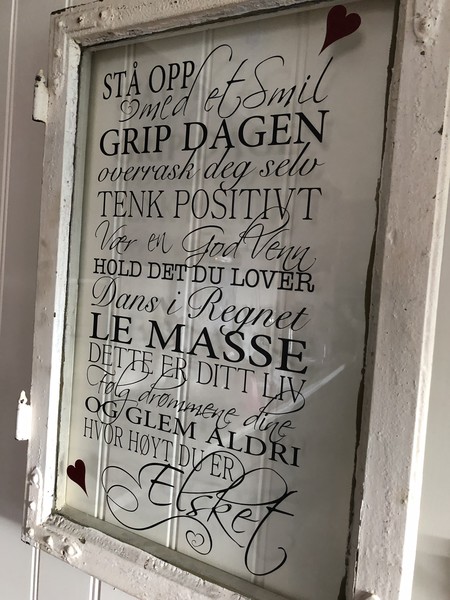 STÅ OPP
med et Smil
GRIP DAGEN
overrask deg selv
TENK POSITIVT
Vær en God Venn
HOLD DET DU LOVER
Dans i Regnet
LE MASSE
DETTE ER DITT LIV
Følg drømmene dine
OG GLEM ALDRI
HVOR HØYT DU ER
Elsket